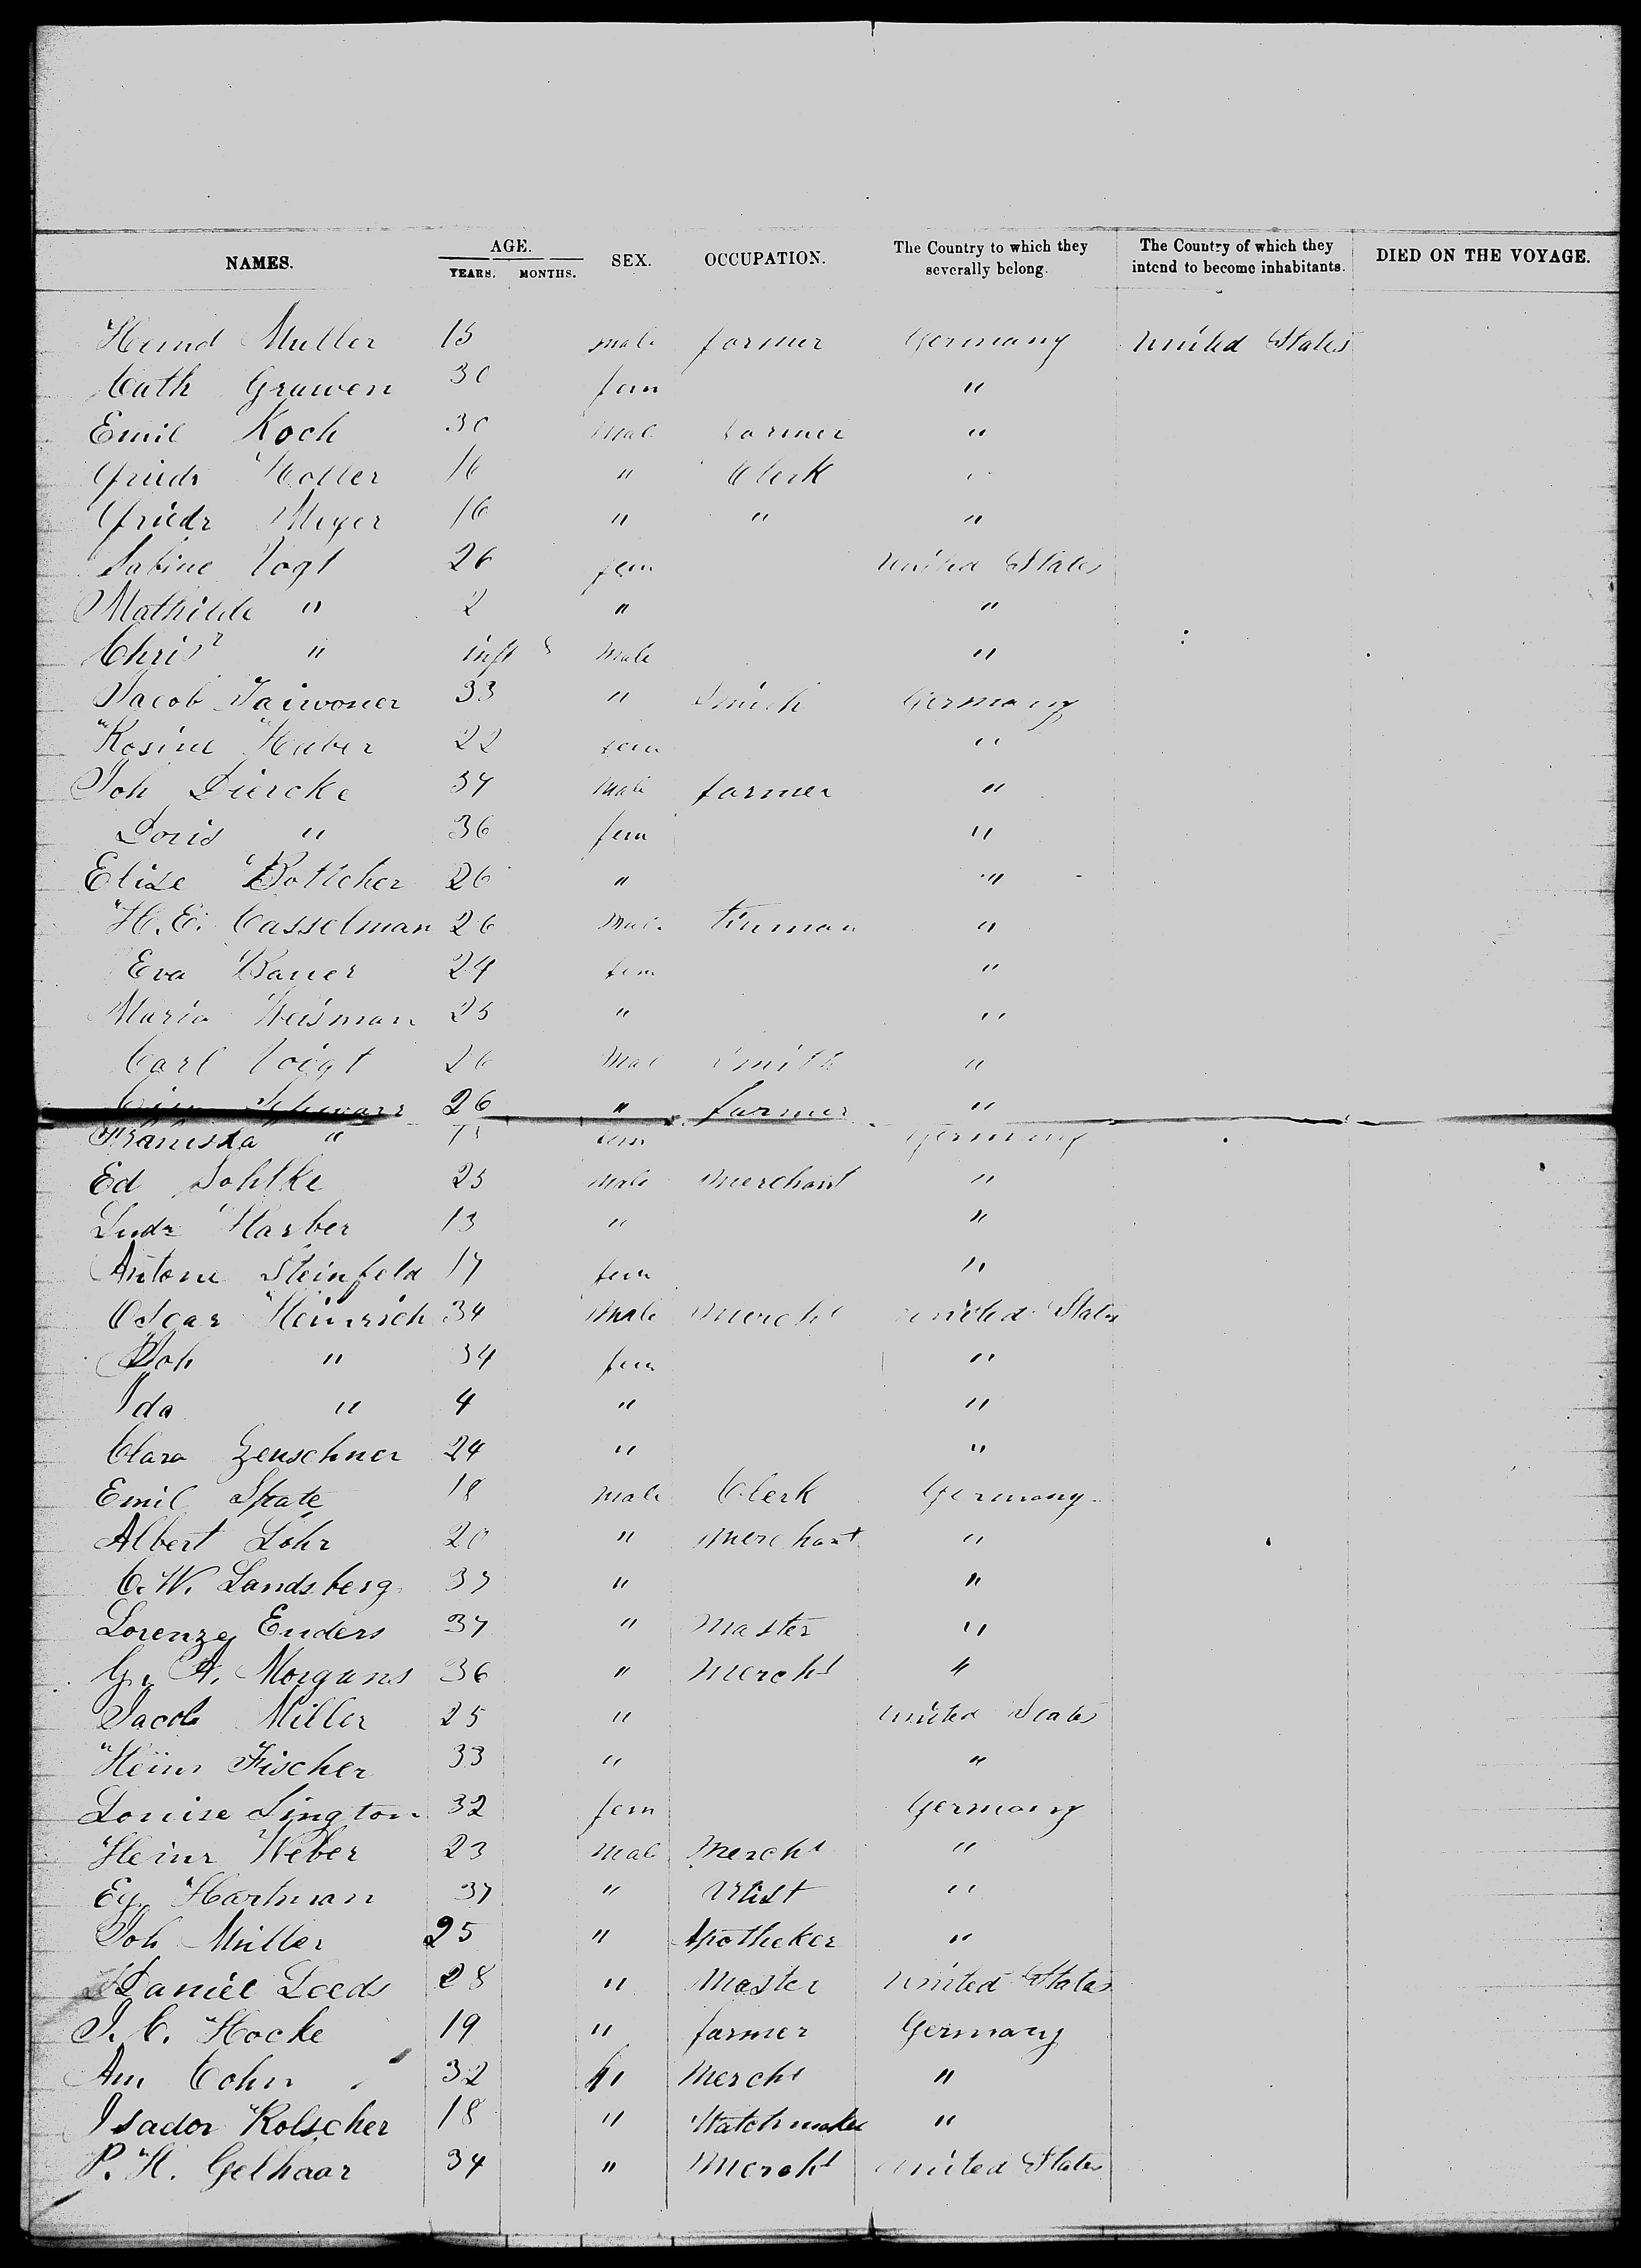 NAMES. AGE. YEARS. MONTHS. SEX. OCCUPATION. The Country to which they severally belong. The Country of which they intend to become inhabitants. DIED ON THE VOYAGE.
Muller 15 male farmer Germany United States
Cath Gruwen 30 fem "
Emil Koch 30 Mal farmer "
Friedr Holler 16 " Clerk "
Friedr Meyer 16 " " "
Sabine Vogt 26 fem United States
Mathilde " 2 " "
Chris " inft male "
Jacob 33 " Smith Germany
Rosine Huber 22 fem "
Joh Diercke 34 male farmer "
Doris " 36 fem "
Elise Botticher 26 " "
H. E. Casselman 26 Mal. "
Eva Bauer 24 fem "
Maria Weisman 25 " "
Carl Voigt 26 Mal Smith "
Schwarz 26 " farmer "
" fem Germany
Ed Dohlke 25 male merchant "
Ludr Harber 13 " "
Antone Steinfeld 17 fem "
Oscar Heinrich 34 male Mercht United States
Joh " 34 fem "
Ida " 4 " "
Clara Zeuschner 24 " "
Emil Spate 18 male Clerk Germany
Albert Lohr 20 " merchant "
C. W. Landsberg 37 " "
Lorenzy Enders 37 " Master "
G. A. Morgans 36 " Mercht "
Jacob Miller 25 " United States
Heinr Fischer 33 " "
Louise Lington 32 fem Germany
Heinr Weber 23 Mal Mercht "
Eg. Hartman 37 " Artist "
Joh Muller 25 " Apotheker "
Daniel Leeds 28 " Master United States
J. C. Hocke 19 " farmer Germany
Am Cohn 32 " Mercht "
Isador Kolscher 18 " Watchmaker "
P. H. Gelhaar 34 " Mercht United States